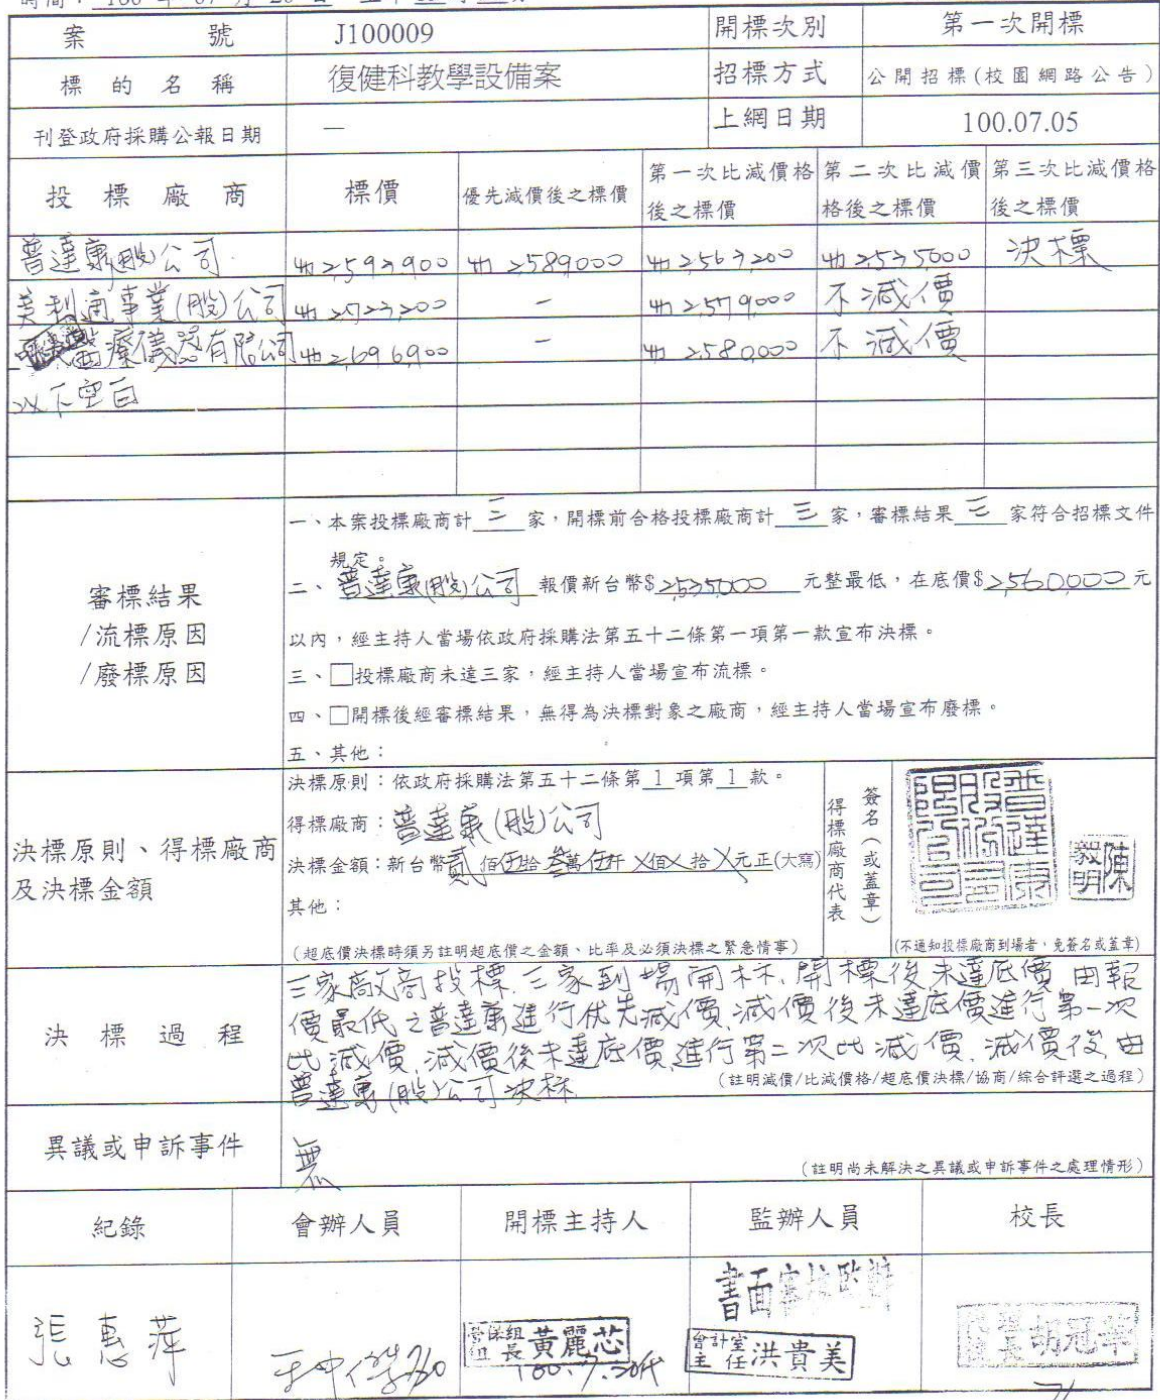 案 號 J100009 開標次別 第一次開標
標 的 名 稱 復健科教學設備案 招標方式 公開招標(校園網路公告)
刊登政府採購公報日期 — 上網日期 100.07.05
投 標 廠 商 標價 優先減價後之標價 第一次比減價格後之標價 第二次比減價格後之標價 第三次比減價格後之標價
普達康(股)公司 2,592,900 2,589,000 2,567,200 2,535,000 決標
美利通事業(股)公司 2,723,200 - 2,579,000 不減價
醫療儀器有限公司 2,696,900 - 2,580,000 不減價
以下空白
審標結果
/流標原因
/廢標原因
一、本案投標廠商計 三 家,開標前合格投標廠商計 三 家,審標結果 三 家符合招標文件
規定。
二、普達康(股)公司 報價新台幣$2,535,000 元整最低,在底價$2,560,000元
以內,經主持人當場依政府採購法第五十二條第一項第一款宣布決標。
三、□投標廠商未達三家,經主持人當場宣布流標。
四、□開標後經審標結果,無得為決標對象之廠商,經主持人當場宣布廢標。
五、其他:
決標原則、得標廠商
及決標金額
決標原則:依政府採購法第五十二條第 1 項第 1 款。
得標廠商:普達康(股)公司
決標金額:新台幣貳佰伍拾叁萬伍仟X佰X拾X元正(大寫)
其他:
(超底價決標時須另註明超底價之金額、比率及必須決標之緊急情事)
得標廠商代表
簽名(或蓋章)
普達康股份有限公司
陳毅明
(不通知投標廠商到場者,免簽名或蓋章)
決 標 過 程
三家廠商投標,三家到場開标,開標後未達底價,由報
價最低之普達康進行优先減價,減價後未達底價進行第一次
比減價,減價後未達底價,進行第二次比減價,減價後,由
普達康(股)公司決标
(註明減價/比減價格/超底價決標/協商/綜合評選之過程)
異議或申訴事件 無
(註明尚未解決之異議或申訴事件之處理情形)
紀錄 會辦人員 開標主持人 監辦人員 校長
張惠萍
組長 黃麗芯
書面審核監辦
會計室主任 洪貴美